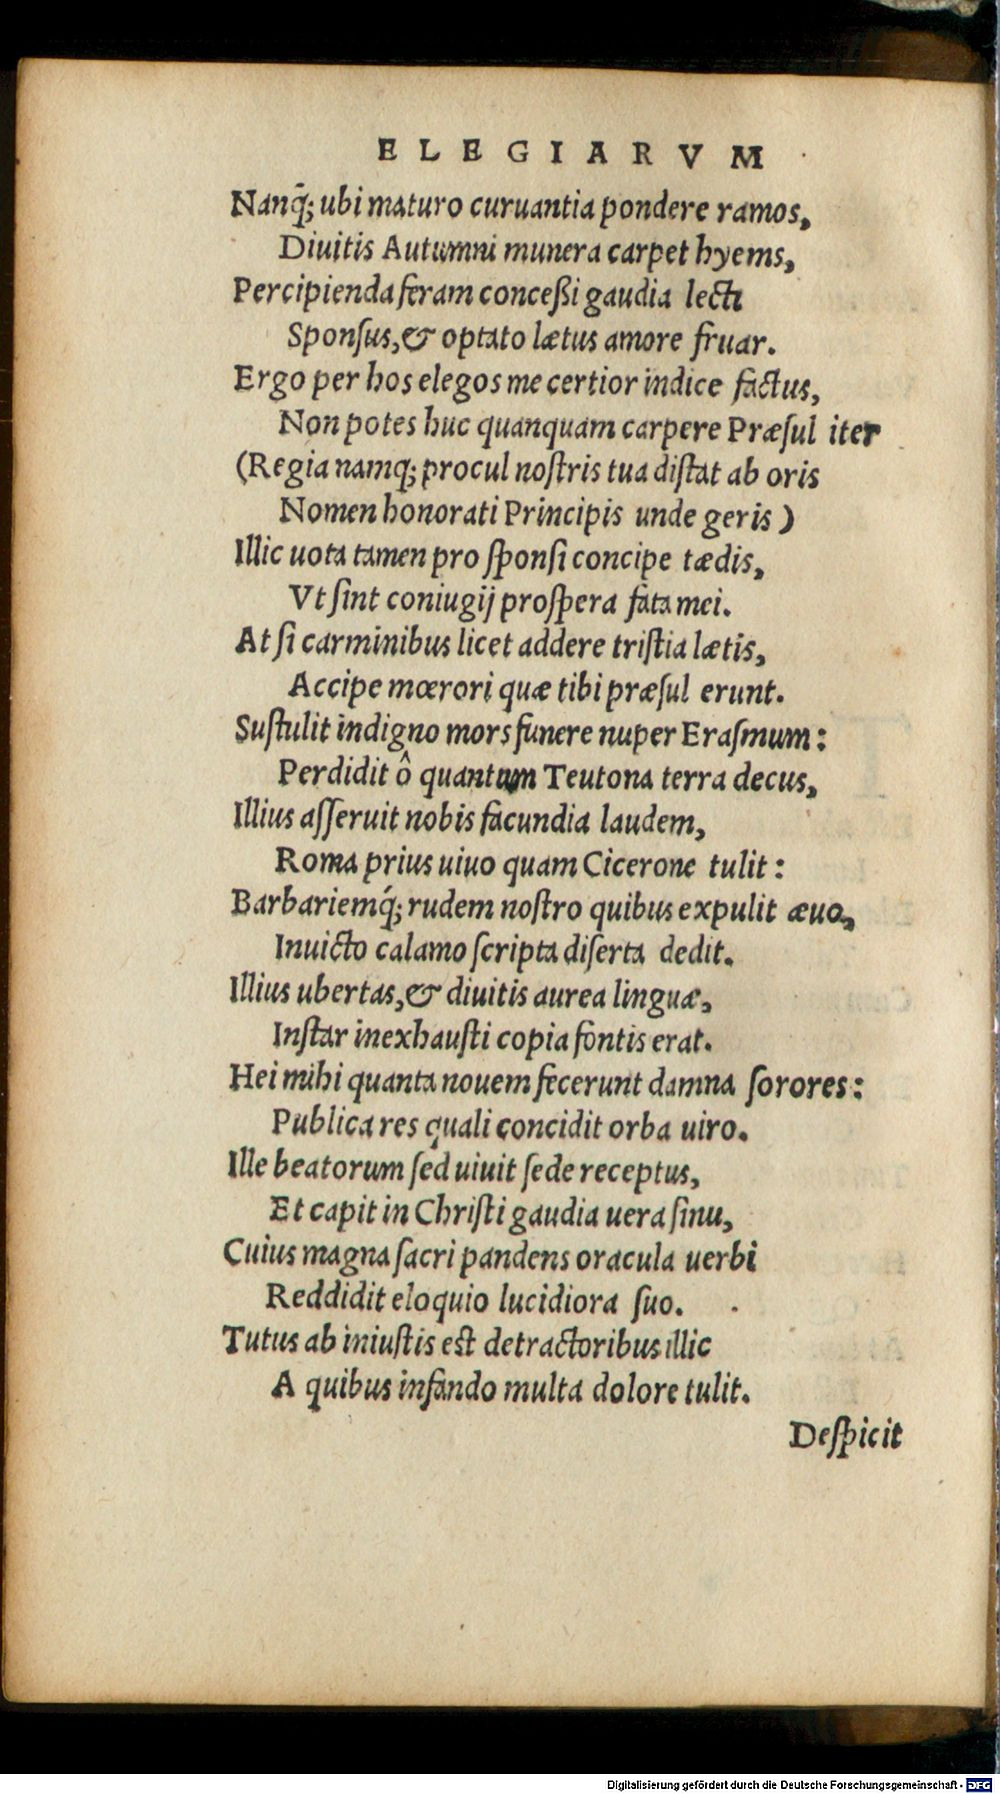 ELEGIARVM
Nanq̃; ubi maturo curuantia pondere ramos,
Diuitis Autumni munera carpet hyems,
Percipienda feram conceßi gaudia lecti
Sponſus, & optato lætus amore fruar.
Ergo per hos elegos me certior indice factus,
Non potes huc quanquam carpere Præſul iter
(Regia namq; procul noſtris tua diſtat ab oris
Nomen honorati Principis unde geris)
Illic uota tamen pro ſponſi concipe tædis,
Vt ſint coniugij proſpera fata mei.
At ſi carminibus licet addere triſtia lætis,
Accipe mœrori quæ tibi præſul erunt.
Suſtulit indigno mors funere nuper Eraſmum:
Perdidit ô quantum Teutona terra decus,
Illius aſſeruit nobis facundia laudem,
Roma prius uiuo quam Cicerone tulit:
Barbariemq́; rudem noſtro quibus expulit æuo,
Inuicto calamo ſcripta diſerta dedit.
Illius ubertas, & diuitis aurea linguæ,
Inſtar inexhauſti copia fontis erat.
Hei mihi quanta nouem fecerunt damna ſorores:
Publica res quali concidit orba uiro.
Ille beatorum ſed uiuit ſede receptus,
Et capit in Chriſti gaudia uera ſinu,
Cuius magna ſacri pandens oracula uerbi
Reddidit eloquio lucidiora ſuo.
Tutus ab iniuſtis eſt detractoribus illic
A quibus infando multa dolore tulit.
Deſpicit
Digitalisierung gefördert durch die Deutsche Forschungsgemeinschaft - DFG